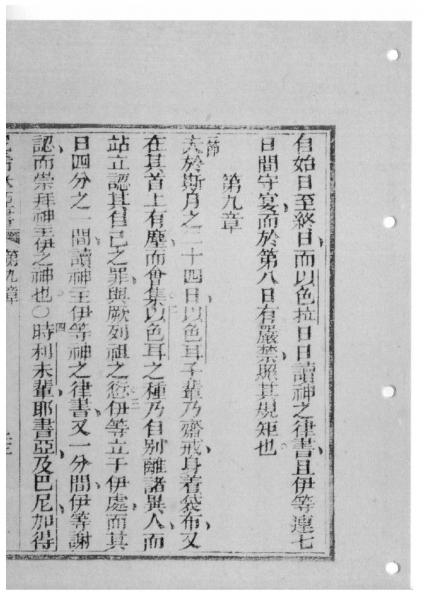 自始日至終日而以色拉日日讀神之律書且伊等連七
日間守宴而於第八日有嚴禁照其規矩也
第九章
夫於斯月之二十四日以色耳子輩乃齋戒身着袋布又
在其首上有塵而會集以色耳之種乃自別離諸異人而
站立認其自己之罪與厥列祖之愆伊等立于伊處而其
日四分之一間讀神主伊等神之律書又一分間伊等謝
認而崇拜神主伊之神也○時利未輩耶書亞及巴尼加得
第九章